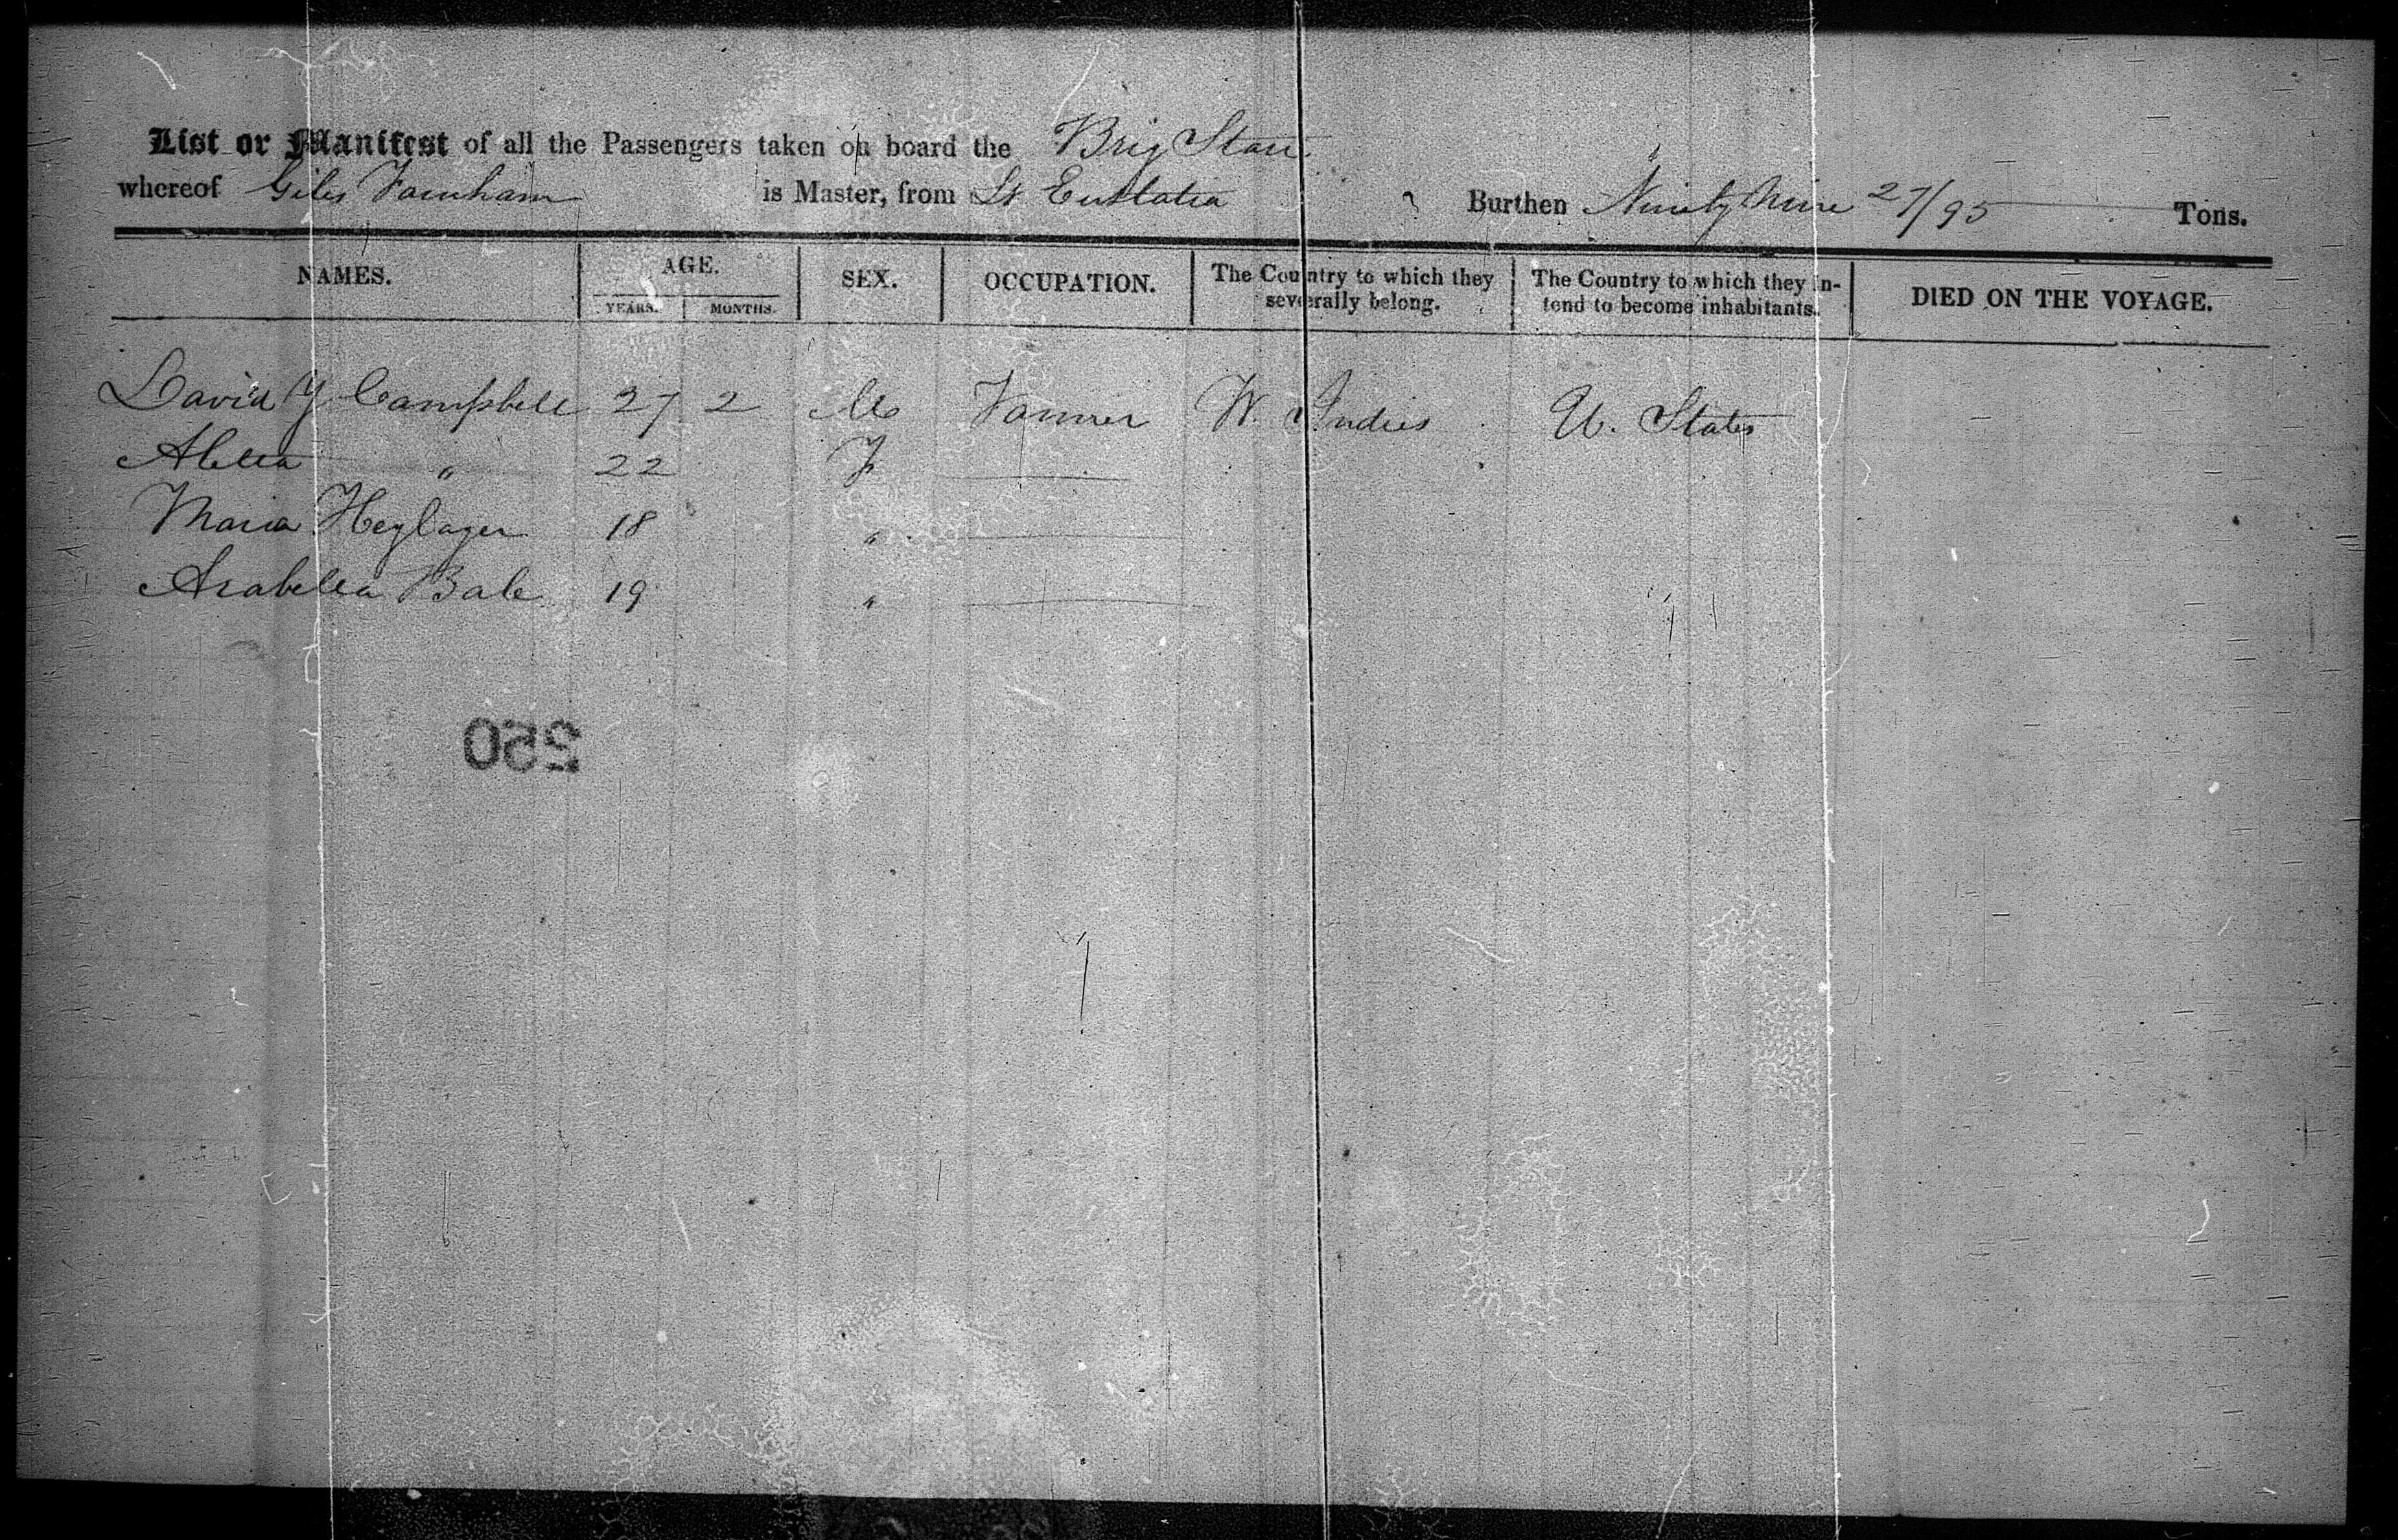 List or Manifest of all the Passengers taken on board the Brig Starr
whereof Giles Farnham is Master, from St Eustatia Burthen Ninety Nine 27/95 Tons.
NAMES. AGE. SEX. OCCUPATION. The Country to which they severally belong. The Country to which they intend to become inhabitants. DIED ON THE VOYAGE.
YEARS. MONTHS.
David Y Campbell 27 2 M Farmer W. Indies U. States
" 22 F
Maria Heylager 18 "
Arabella 19 "
250